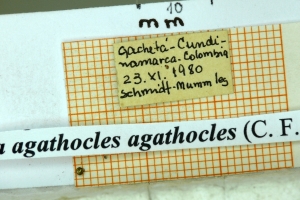 10
mm
Gachetá-Cundi-
namarca-Colombia
23.XI.1980
Schmidt-Mumm leg
a agathocles agathocles (C. F.